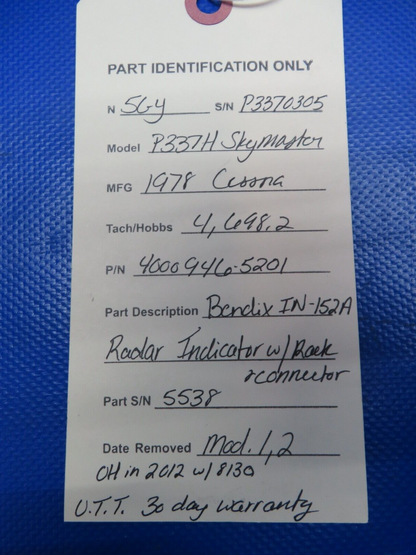 PART IDENTIFICATION ONLY
N 5GY S/N P3370305
Model P337H Skymaster
MFG 1978 Cessna
Tach/Hobbs 4,698.2
P/N 4000946-5201
Part Description Bendix IN-152A
Radar Indicator w/ Rack
& connector
Part S/N 5538
Date Removed Mod. 1,2
OH in 2012 w/ 8130
U.T.T. 30 day warranty